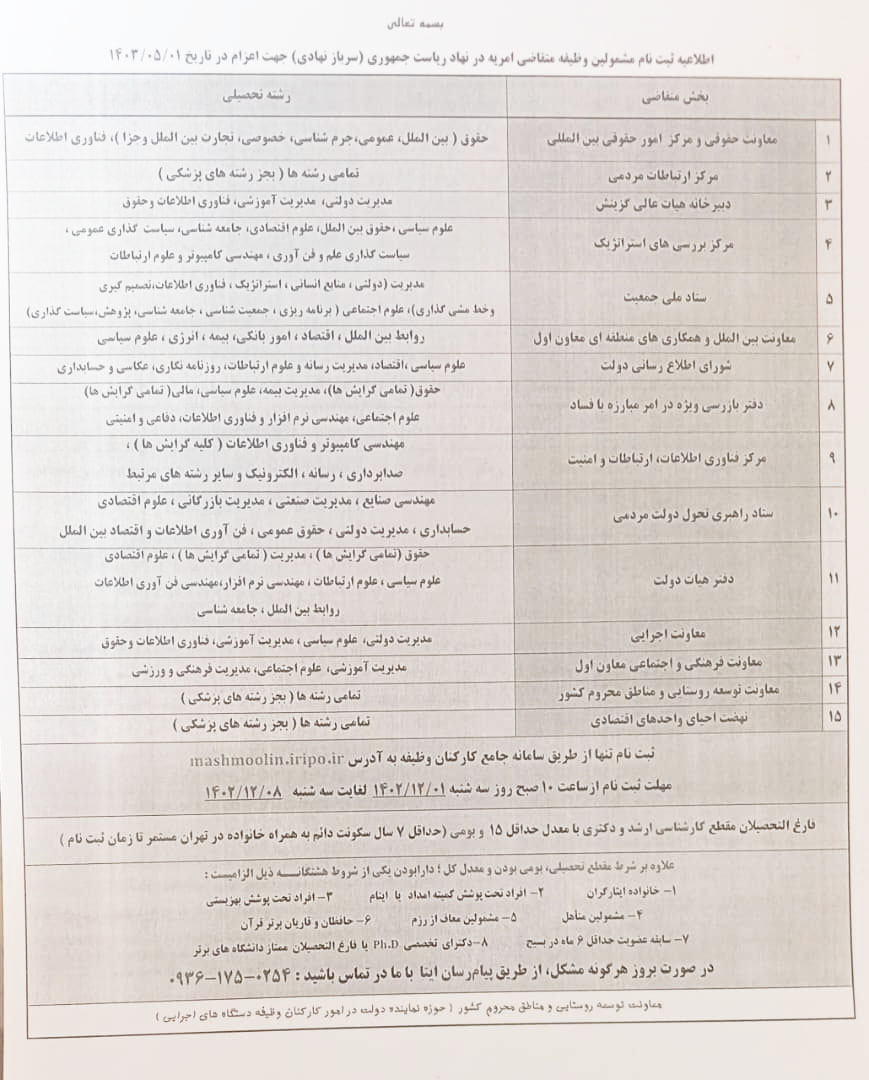 بسمه تعالی
اطلاعیه ثبت نام مشمولین وظیفه متقاضی امریه در نهاد ریاست جمهوری (سرباز نهادی) جهت اعزام در تاریخ ۱۴۰۳/۰۵/۰۱
بخش متقاضی رشته تحصیلی
۱ معاونت حقوقی و مرکز امور حقوقی بین المللی حقوق ( بین الملل، عمومی،جرم شناسی، خصوصی، تجارت بین الملل وجزا )، فناوری اطلاعات
۲ مرکز ارتباطات مردمی تمامی رشته ها ( بجز رشته های پزشکی )
۳ دبیرخانه هیات عالی گزینش مدیریت دولتی، مدیریت آموزشی، فناوری اطلاعات وحقوق
۴ مرکز بررسی های استراتژیک علوم سیاسی ،حقوق بین الملل، علوم اقتصادی، جامعه شناسی، سیاست گذاری عمومی ،
سیاست گذاری علم و فن آوری ، مهندسی کامپیوتر و علوم ارتباطات
۵ ستاد ملی جمعیت مدیریت (دولتی ، منابع انسانی ، استراتژیک ، فناوری اطلاعات،تصمیم گیری
وخط مشی گذاری)، علوم اجتماعی ( برنامه ریزی ، جمعیت شناسی ، جامعه شناسی، پژوهش،سیاست گذاری)
۶ معاونت بین الملل و همکاری های منطقه ای معاون اول روابط بین الملل ، اقتصاد ، امور بانکی، بیمه ، انرژی ، علوم سیاسی
۷ شورای اطلاع رسانی دولت علوم سیاسی ،اقتصاد، مدیریت رسانه و علوم ارتباطات، روزنامه نگاری، عکاسی و حسابداری
۸ دفتر بازرسی ویژه در امر مبارزه با فساد حقوق( تمامی گرایش ها)، مدیریت بیمه، علوم سیاسی، مالی( تمامی گرایش ها)
علوم اجتماعی، مهندسی نرم افزار و فناوری اطلاعات، دفاعی و امنیتی
۹ مرکز فناوری اطلاعات، ارتباطات و امنیت مهندسی کامپیوتر و فناوری اطلاعات ( کلیه گرایش ها ) ،
صدابرداری ، رسانه ، الکترونیک و سایر رشته های مرتبط
۱۰ ستاد راهبری تحول دولت مردمی مهندسی صنایع ، مدیریت صنعتی ، مدیریت بازرگانی ، علوم اقتصادی
حسابداری ، مدیریت دولتی ، حقوق عمومی ، فن آوری اطلاعات و اقتصاد بین الملل
۱۱ دفتر هیات دولت حقوق (تمامی گرایش ها) ، مدیریت ( تمامی گرایش ها ) ، علوم اقتصادی
علوم سیاسی ، علوم ارتباطات ، مهندسی نرم افزار،مهندسی فن آوری اطلاعات
روابط بین الملل ، جامعه شناسی
۱۲ معاونت اجرایی مدیریت دولتی، علوم سیاسی ، مدیریت آموزشی، فناوری اطلاعات وحقوق
۱۳ معاونت فرهنگی و اجتماعی معاون اول مدیریت آموزشی، علوم اجتماعی، مدیریت فرهنگی و ورزشی
۱۴ معاونت توسعه روستایی و مناطق محروم کشور تمامی رشته ها ( بجز رشته های پزشکی )
۱۵ نهضت احیای واحدهای اقتصادی تمامی رشته ها ( بجز رشته های پزشکی )
ثبت نام تنها از طریق سامانه جامع کارکنان وظیفه به آدرس mashmoolin.iripo.ir
مهلت ثبت نام از ساعت ۱۰ صبح روز سه شنبه ۱۴۰۲/۱۲/۰۱ لغایت سه شنبه ۱۴۰۲/۱۲/۰۸
فارغ التحصیلان مقطع کارشناسی ارشد و دکتری با معدل حداقل ۱۵ و بومی (حداقل ۷ سال سکونت دائم به همراه خانواده در تهران مستمر تا زمان ثبت نام )
علاوه بر شرط مقطع تحصیلی، بومی بودن و معدل کل ؛ دارابودن یکی از شروط هشتگانــــه ذیل الزامیست :
۱- خانواده ایثارگران ۲- افراد تحت پوشش کمیته امداد یا ایتام ۳- افراد تحت پوشش بهزیستی
۴- مشمولین متأهل ۵- مشمولین معاف از رزم ۶- حافظان و قاریان برتر قرآن
۷- سابقه عضویت حداقل ۶ ماه در بسیج ۸-دکترای تخصصی Ph.D یا فارغ التحصیلان ممتاز دانشگاه های برتر
در صورت بروز هرگونه مشکل، از طریق پیام‌رسان ایتا با ما در تماس باشید : ۰۲۵۴-۱۷۵-۰۹۳۶
معاونت توسعه روستایی و مناطق محروم کشور ( حوزه نماینده دولت در امور کارکنان وظیفه دستگاه های اجرایی )